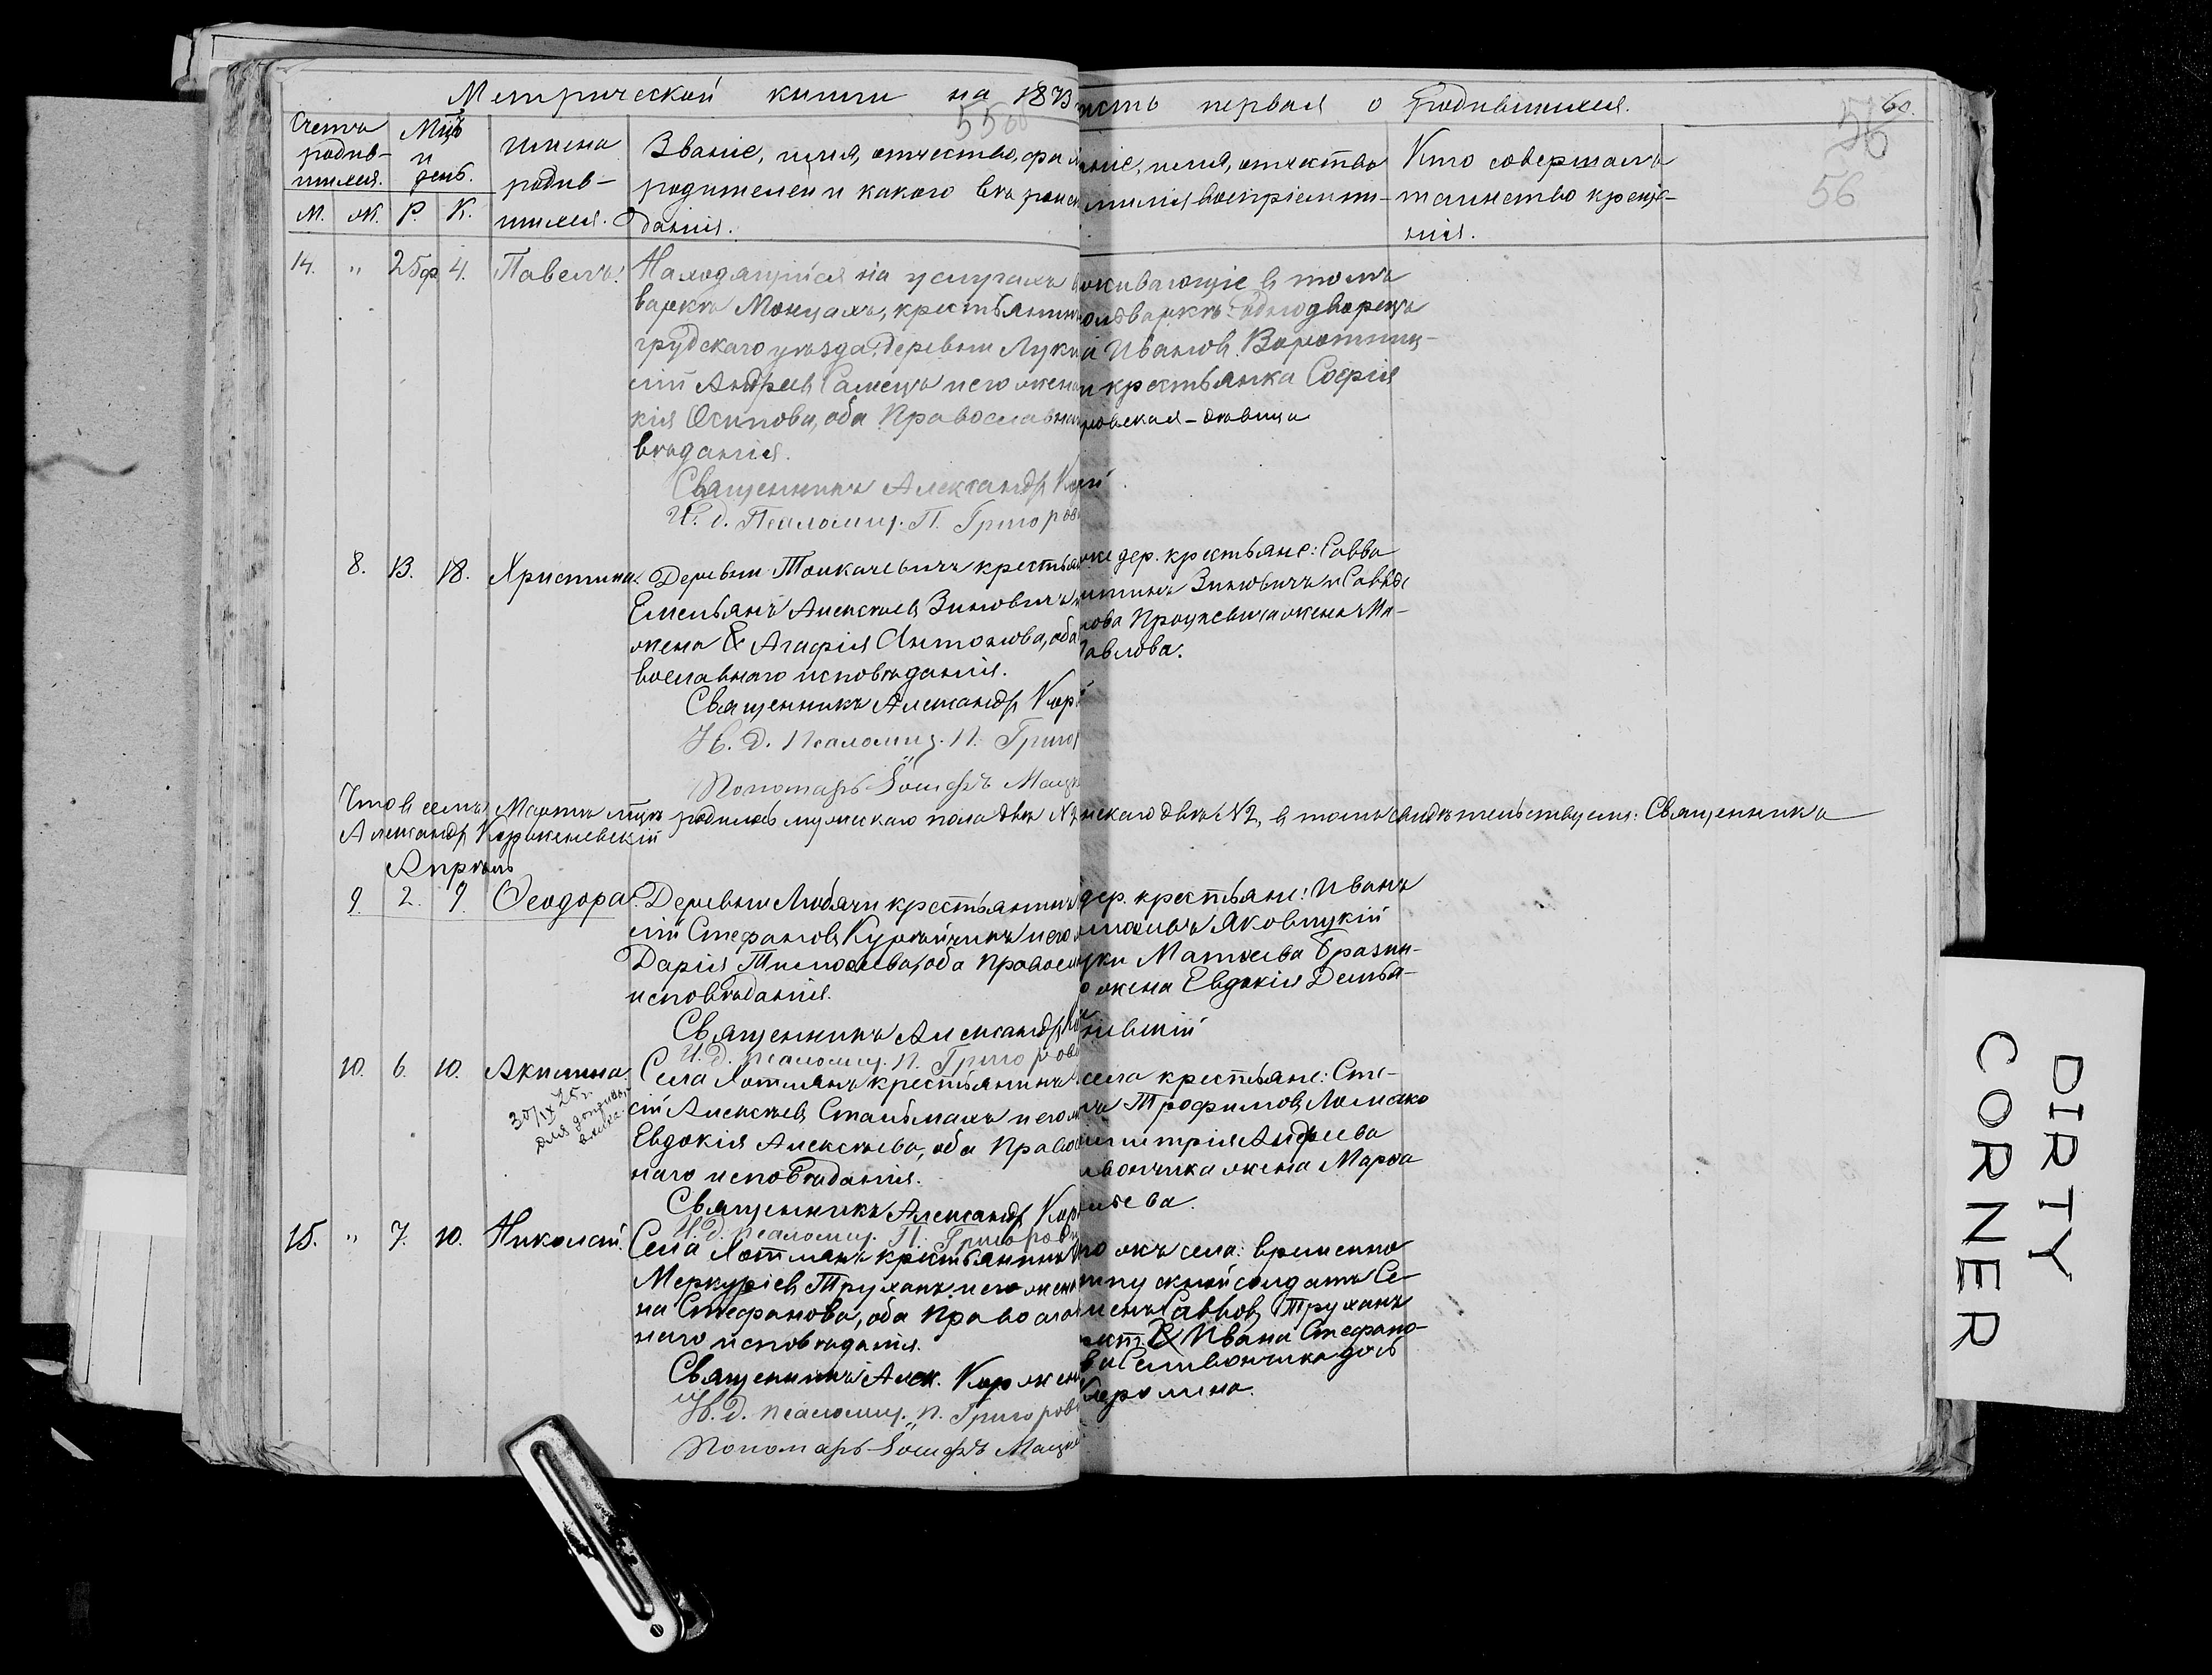 Метрической книги на 1873
асть первая о родившихся.
60.
55 60
56
56
Счетъ родив-шихся.
Мцъ и день.
Имена родив-шихся.
М. Ж. Р. К.
Званіе, имя, отчество, фами
родителей и какого вѣроиспо
данія.
аніе, имя, отчество
милія воспріемни-
Кто совершалъ
таинство креще-
нія.
14. " 25ф. 4. Павелъ.
Находящійся на услугахъ в
варкѣ Монцахъ, крестьянинъ
грудскаго уѣзда, деревни Луки
лій Андреев Самецъ и его жена
кія Осипова, оба Православна
вѣданія.
Священникъ Александр Кор
И. д. Псаломщ. П. Григоров
оживающіе в томъ
ольваркѣ: однодворецъ
й Иванов Воротниц-
и крестьянка Софія
ровская - дѣвица
8. 13. 18. Христина.
Деревни Толкачевичъ крестьян
Емельянъ Алексѣев Зиновичъ и
жена Агафія Антонова, оба
вославнаго исповѣданія.
Священникъ Александр Корж
И. д. Псаломщ. П. Григор
Пономарь Іосифъ Мацк
же дер. крестьяне: Савва
Зиновичъ и
нова Процкевича жена Ма-
Павлова.
Что в семъ Мартѣ мцѣ родилось мужскаго пола два №2 нскаго два №2, в томъ свидѣтельствуемъ: Священникъ
Александр Корженевскій
Апрѣль
9. 2. 9. Ѳеодора.
Деревни Любачи крестьянинъ
лій Стефанов и его ж
Дарія Тимоѳеева, оба Правосл
исповѣданія.
Священникъ Александр Кор
И. д. Псаломщ. П. Григоров
дер. крестьяне: Иванъ
Яковицкій
Матѳеева
жена Евдокія Демья-
невскій
10. 6. 10. Акилина.
30/IX 25 г.
Села Жотлянъ крестьянинъ
сій Алексѣев Стальмахъ и его ж
Евдокія Алексѣева, оба Правос
наго исповѣданія.
Священникъ Александр Кор
И. д. Псаломщ. П. Григоров
села крестьяне: Сте-
нъ Трофимов Ломако
имитрія Андреева
ивончика жена Марѳа
еева.
15. " 7. 10. Николай.
Села Жотлянъ крестьянинъ
Меркуріев Труханъ и его жена
на Стефанова, оба Православ
наго исповѣданія.
Священникъ Алек. Коржен
И. д. Псаломщ. П. Григоров
Пономарь Іосифъ Мацкев
го жъ села: временно
тпускной солдатъ Се-
менъ Саввов Труханъ
Ивана Стефано-
ва Селивончика дочь
Каролина.
DIRTY
CORNER